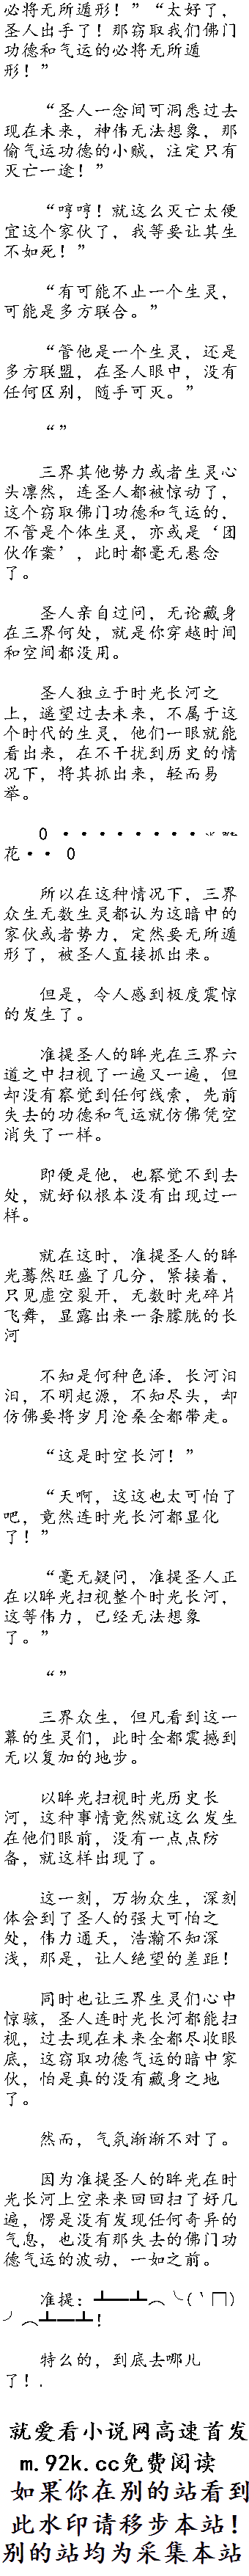 必将无所遁形！”“太好了，
圣人出手了！那窃取我们佛门
功德和气运的必将无所遁
形！”
“圣人一念间可洞悉过去
现在未来，神伟无法想象，那
偷气运功德的小贼，注定只有
灭亡一途！”
“哼哼！就这么灭亡太便
宜这个家伙了，我等要让其生
不如死！”
“有可能不止一个生灵，
可能是多方联合。”
“管他是一个生灵，还是
多方联盟，在圣人眼中，没有
任何区别，随手可灭。”
“”
三界其他势力或者生灵心
头凛然，连圣人都被惊动了，
这个窃取佛门功德和气运的，
不管是个体生灵，亦或是‘团
伙作案’，此时都毫无悬念
了。
圣人亲自过问，无论藏身
在三界何处，就是你穿越时间
和空间都没用。
圣人独立于时光长河之
上，遥望过去未来，不属于这
个时代的生灵，他们一眼就能
看出来，在不干扰到历史的情
况下，将其抓出来，轻而易
举。
0 ········
花·· 0
所以在这种情况下，三界
众生无数生灵都认为这暗中的
家伙或者势力，定然要无所遁
形了，被圣人直接抓出来。
但是，令人感到极度震惊
的发生了。
准提圣人的眸光在三界六
道之中扫视了一遍又一遍，但
却没有察觉到任何线索，先前
失去的功德和气运就仿佛凭空
消失了一样。
即便是他，也察觉不到去
处，就好似根本没有出现过一
样。
就在这时，准提圣人的眸
光蓦然旺盛了几分，紧接着，
只见虚空裂开，无数时光碎片
飞舞，显露出来一条朦胧的长
河
不知是何种色泽．长河汩
汩，不明起源，不知尽头，却
仿佛要将岁月沧桑全都带走。
“这是时空长河！”
“天啊，这这也太可怕了
吧，竟然连时光长河都显化
了！”
“毫无疑问，准提圣人正
在以眸光扫视整个时光长河，
这等伟力，已经无法想象
了。”
“”
三界众生，但凡看到这一
幕的生灵们，此时全都震撼到
无以复加的地步。
以眸光扫视时光历史长
河，这种事情竟然就这么发生
在他们眼前，没有一点点防
备，就这样出现了。
这一刻，万物众生，深刻
体会到了圣人的强大可怕之
处，伟力通天，浩瀚不知深
浅，那是，让人绝望的差距！
同时也让三界生灵们心中
惊骇，圣人连时光长河都能扫
视，过去现在未来全都尽收眼
底，这窃取功德气运的暗中家
伙，怕是真的没有藏身之地
了。
然而，气氛渐渐不对了。
因为准提圣人的眸光在时
光长河上空来来回回扫了好几
遍，愣是没有发现任何奇异的
气息，也没有那失去的佛门功
德气运的波动，一如之前。
准提：┻━┻︵╰(‵□′)
╯︵┻━┻！
特么的，到底去哪儿
了！．
就爱看小说网高速首发
m.92k.cc免费阅读
如果你在别的站看到
此水印请移步本站！
别的站均为采集本站